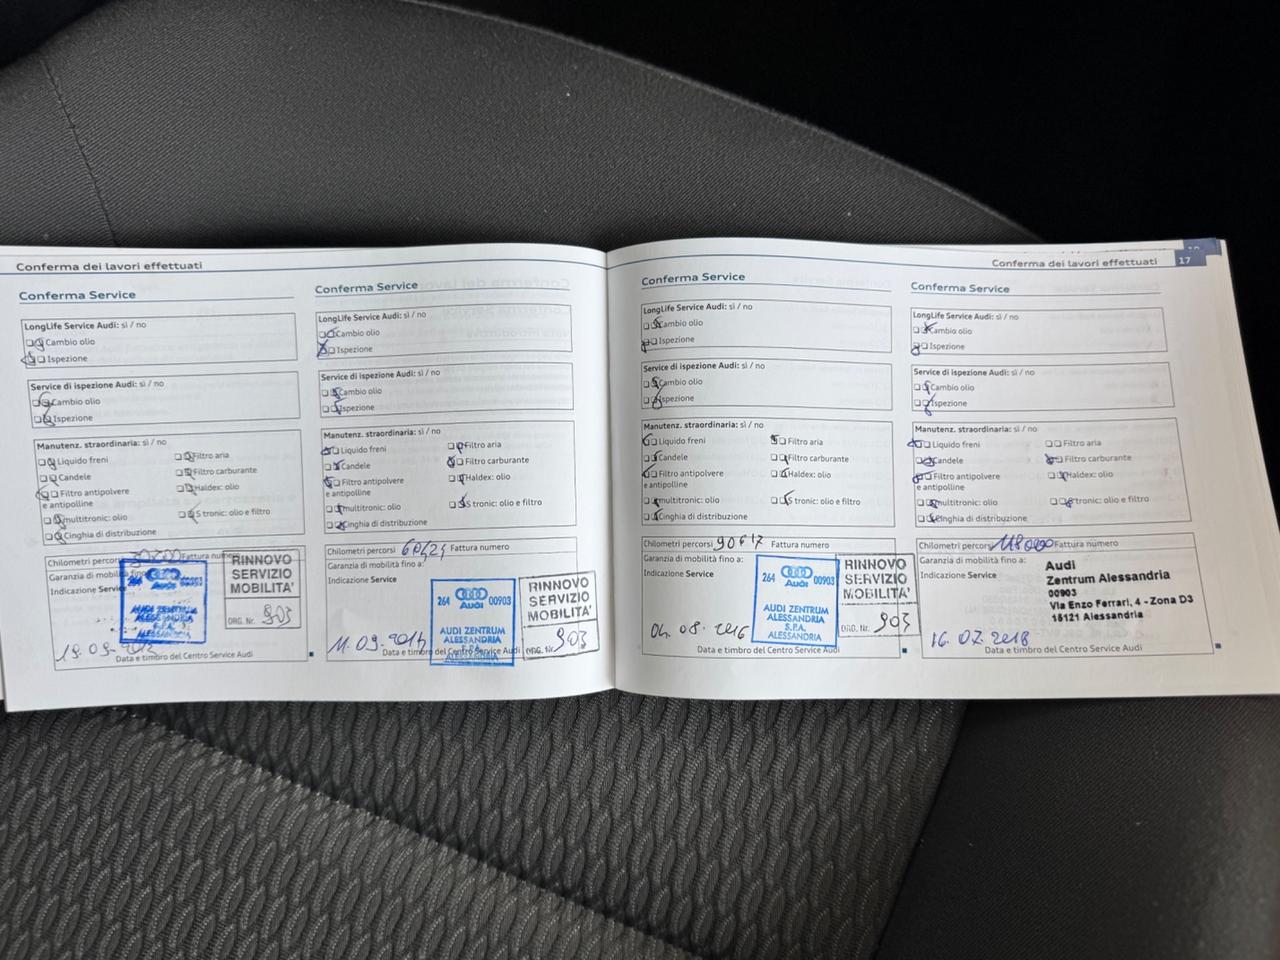 Conferma dei lavori effettuati
Conferma Service
LongLife Service Audi: sì / no
Cambio olio
Ispezione
Service di ispezione Audi: sì / no
Cambio olio
Ispezione
Manutenz. straordinaria: sì / no
Liquido freni
Filtro aria
Candele
Filtro carburante
Filtro antipolvere
e antipolline
Haldex: olio
multitronic: olio
S tronic: olio e filtro
Cinghia di distribuzione
Chilometri percorsi Fattura numero
Garanzia di mobilità fino
Indicazione Service
264 Audi 00903
AUDI ZENTRUM
ALESSANDRIA
S.P.A.
ALESSANDRIA
RINNOVO
SERVIZIO
MOBILITA'
ORG. Nr. 903
19.09.2012
Data e timbro del Centro Service Audi
Conferma Service
LongLife Service Audi: sì / no
Cambio olio
Ispezione
Service di ispezione Audi: sì / no
Cambio olio
Ispezione
Manutenz. straordinaria: sì / no
Liquido freni
Filtro aria
Candele
Filtro carburante
Filtro antipolvere
e antipolline
Haldex: olio
multitronic: olio
S tronic: olio e filtro
Cinghia di distribuzione
Chilometri percorsi 60424 Fattura numero
Garanzia di mobilità fino a:
Indicazione Service
264 Audi 00903
AUDI ZENTRUM
ALESSANDRIA
S.P.A.
ALESSANDRIA
RINNOVO
SERVIZIO
MOBILITA'
ORG. Nr. 903
11.09.2014
Data e timbro del Centro Service Audi
Conferma dei lavori effettuati 17
Conferma Service
LongLife Service Audi: sì / no
Cambio olio
Ispezione
Service di ispezione Audi: sì / no
Cambio olio
Ispezione
Manutenz. straordinaria: sì / no
Liquido freni
Filtro aria
Candele
Filtro carburante
Filtro antipolvere
e antipolline
Haldex: olio
multitronic: olio
S tronic: olio e filtro
Cinghia di distribuzione
Chilometri percorsi 90617 Fattura numero
Garanzia di mobilità fino a:
Indicazione Service
264 Audi 00903
AUDI ZENTRUM
ALESSANDRIA
S.P.A.
ALESSANDRIA
RINNOVO
SERVIZIO
MOBILITA'
ORG. Nr. 903
04.08.2016
Data e timbro del Centro Service Audi
Conferma Service
LongLife Service Audi: sì / no
Cambio olio
Ispezione
Service di ispezione Audi: sì / no
Cambio olio
Ispezione
Manutenz. straordinaria: sì / no
Liquido freni
Filtro aria
Candele
Filtro carburante
Filtro antipolvere
e antipolline
Haldex: olio
multitronic: olio
S tronic: olio e filtro
Cinghia di distribuzione
Chilometri percorsi 118000 Fattura numero
Garanzia di mobilità fino a:
Indicazione Service
Audi
Zentrum Alessandria
00903
Via Enzo Ferrari, 4 - Zona D3
15121 Alessandria
16.07.2018
Data e timbro del Centro Service Audi